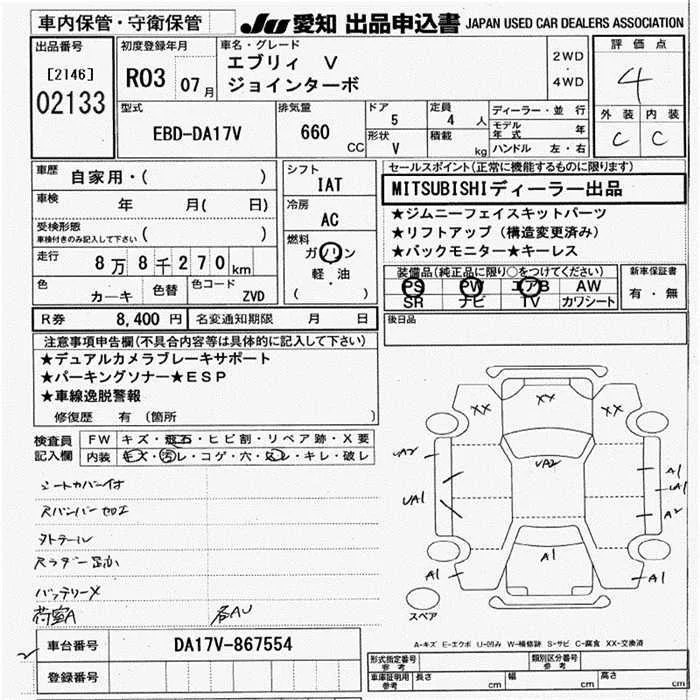 車内保管・守衛保管
JU 愛知 出品申込書 JAPAN USED CAR DEALERS ASSOCIATION
出品番号
[2146]
02133
初度登録年月
R03 07月
車名・グレード
エブリィ V
ジョインターボ
2WD
・
4WD
評価点
4
外装 内装
C C
型式
EBD-DA17V
排気量
660 CC
ドア
5
定員
4 人
形状
V
積載
kg
ディーラー・並行
モデル年式 年
ハンドル 左・右
車歴
自家用・( )
車検
年 月( 日)
受検形態
車検付きのみ記入して下さい ( )
走行
8万8千270km
色
カーキ
色替
色コード
ZVD
シフト
IAT
冷房
AC
燃料
ガソリン
軽・油
( )
セールスポイント(正常に機能するものに限ります)
MITSUBISHIディーラー出品
★ジムニーフェイスキットパーツ
★リフトアップ(構造変更済み)
★バックモニター★キーレス
装備品(純正品に限り○をつけてください)
PS PW エアB AW
SR ナビ TV カワシート
新車保証書
有・無
R券 8,400円 名変通知期限 月 日
後日品
注意事項申告欄(不具合内容等は具体的に記入して下さい)
★デュアルカメラブレーキサポート
★パーキングソナー★ESP
★車線逸脱警報
修復歴 有 (箇所 )
検査員記入欄
FW キズ・飛石・ヒビ割・リペア跡・X要
内装 キズ・汚レ・コゲ・穴・ハレ・キレ・破レ
シートカバー付
Rバンパー加工
タトール
バッテリーX
荷室A
各AU
XX XX XX
UA2
UA2
UA1
A1
UA1
A2
A1
A1
A1
スペア
A-キズ E-エクボ U-凹み W-補修跡 S-サビ C-腐食 XX-交換済
車台番号 DA17V-867554
登録番号
形式指定番号 参考
類別区分番号 参考
車庫証明用 参考 長さ cm 幅 cm 高さ cm